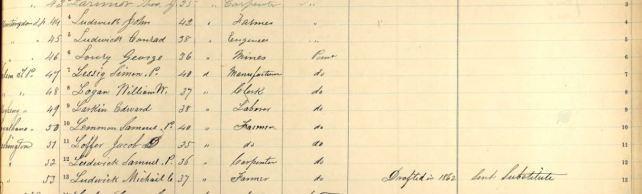 43 Larimor 35 " Carpenter " 3
44 4 Ludwick John 42 " Farmer " 4
" 45 5 Ludwick Conrad 38 " Engineer " 5
" 46 6 Lowry George 36 " Miner Penna 6
47 7 Lessig Simon P. 40 Manufacturer do 7
" 48 8 Logan William W. 37 " Clerk do 8
" 49 9 Larkin Edward 38 " Laborer do 9
" 50 10 Lemmon Samuel P. 40 " Farmer do 10
51 11 Loffer Jacob D 35 " do do 11
" 52 12 Ludwick Samuel P. 36 " Carpenter do 12
" 53 13 Ludwick Michael C. 37 " Farmer do Drafted in 1862 Sent Substitute 13